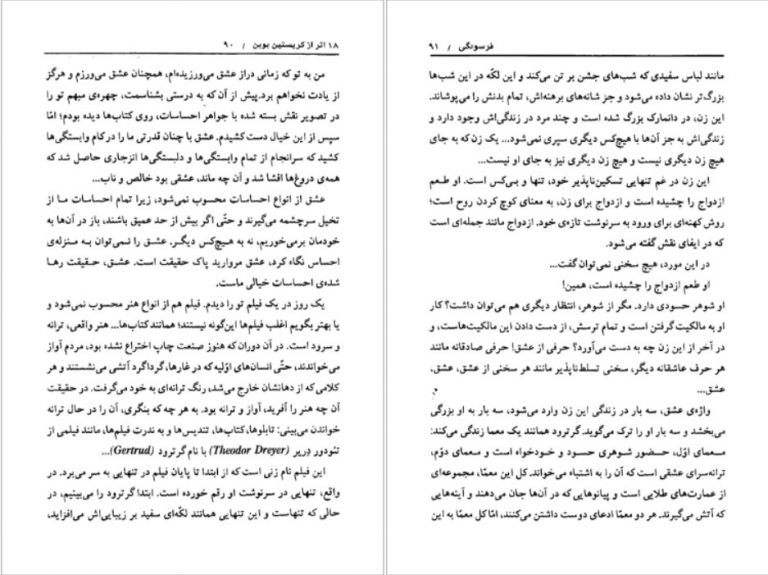 ۱۸ اثر از کریستین بوبن / ۹۰
من به تو که زمانی دراز عشق می‌ورزیده‌ام، همچنان عشق می‌ورزم و هرگز
از یادت نخواهم برد. پیش از آن که به درستی بشناسمت، چهره‌ی مبهم تو را
در تصویر نقش بسته شده با جواهر احساسات، روی کتاب‌ها دیده بودم؛ امّا
سپس از این خیال دست کشیدم. عشق با چنان قدرتی ما را درکام وابستگی‌ها
کشید که سرانجام از تمام وابستگی‌ها و دلبستگی‌ها انزجاری حاصل شد که
همه‌ی دروغ‌ها افشا شد و آن چه ماند، عشقی بود خالص و ناب...
عشق از انواع احساسات محسوب نمی‌شود، زیرا تمام احساسات ما از
تخیل سرچشمه می‌گیرند و حتّی اگر بیش از حد عمیق باشند، باز در آن‌ها به
خودمان برمی‌خوریم، نه به هیچ‌کس دیگر. عشق را نمی‌توان به منزله‌ی
احساس نگاه کرد، عشق مروارید پاک حقیقت است. عشق، حقیقت رها
شده‌ی احساسات خیالی ماست.
یک روز در یک فیلم تو را دیدم. فیلم هم از انواع هنر محسوب نمی‌شود و
یا بهتر بگویم اغلب فیلم‌ها این‌گونه نیستند؛ همانند کتاب‌ها... هنر واقعی، ترانه
و سرود است. در آن دوران که هنوز صنعت چاپ اختراع نشده بود، مردم آواز
می‌خواندند، حتّی انسان‌های اوّلیه که در غارها، گرداگرد آتشی می‌نشستند و هر
کلامی که از دهانشان خارج می‌شد، رنگ ترانه‌ای به خود می‌گرفت. در حقیقت
آن چه هنر را آفرید، آواز و ترانه بود. به هر چه که بنگری، آن را در حال ترانه
خواندن می‌بینی: تابلوها، کتاب‌ها، تندیس‌ها و به ندرت فیلم‌ها، مانند فیلمی از
تئودور دریر (Theodor Dreyer) با نام گرترود (Gertrud)...
این فیلم نام زنی است که از ابتدا تا پایان فیلم در تنهایی به سر می‌برد. در
واقع، تنهایی در سرنوشت او رقم خورده است. ابتدا گرترود را می‌بینیم، در
حالی که تنهاست و این تنهایی همانند لکّه‌ای سفید بر زیبایی‌اش می‌افزاید،
فرسودگی / ۹۱
مانند لباس سفیدی که شب‌های جشن بر تن می‌کند و این لکّه در این شب‌ها
بزرگ‌تر نشان داده می‌شود و جز شانه‌های برهنه‌اش، تمام بدنش را می‌پوشاند.
این زن، در دانمارک بزرگ شده است و چند مرد در زندگی‌اش وجود دارد و
زندگی‌اش به جز آن‌ها با هیچ‌کس دیگری سپری نمی‌شود... یک زن که به جای
هیچ زن دیگری نیست و هیچ زن دیگری نیز به جای او نیست...
این زن در غم تنهایی تسکین‌ناپذیر خود، تنها و بی‌کس است. او طعم
ازدواج را چشیده است و ازدواج برای زن، به معنای کوچ کردن روح است؛
روش کهنه‌ای برای ورود به سرنوشت تازه‌ی خود. ازدواج مانند جمله‌ای است
که در ایفای نقش گفته می‌شود.
در این مورد، هیچ سخنی نمی‌توان گفت...
او طعم ازدواج را چشیده است، همین!
او شوهر حسودی دارد. مگر از شوهر، انتظار دیگری هم می‌توان داشت؟ کار
او به مالکیت گرفتن است و تمام ترسش، از دست دادن این مالکیت‌هاست، و
در آخر از این زن چه به دست می‌آورد؟ حرفی از عشق! حرفی صادقانه مانند
هر حرف عاشقانه دیگر، سخنی تسلط‌ناپذیر مانند هر سخنی از عشق، عشق،
عشق...
واژه‌ی عشق، سه بار در زندگی این زن وارد می‌شود، سه بار به او بزرگی
می‌بخشد و سه بار او را ترک می‌گوید. گرترود همانند یک معما زندگی می‌کند:
معمای اوّل، حضور شوهری حسود و خودخواه است و معمای دوّم،
ترانه‌سرای عشقی است که آن را به اشتباه می‌خواند. کل این معمّا، مجموعه‌ای
از عمارت‌های طلایی است و پیانوهایی که در آن‌ها جان می‌دهند و آینه‌هایی
که آتش می‌گیرند. هر دو معمّا ادعای دوست داشتن می‌کنند، امّا کل معمّا به این